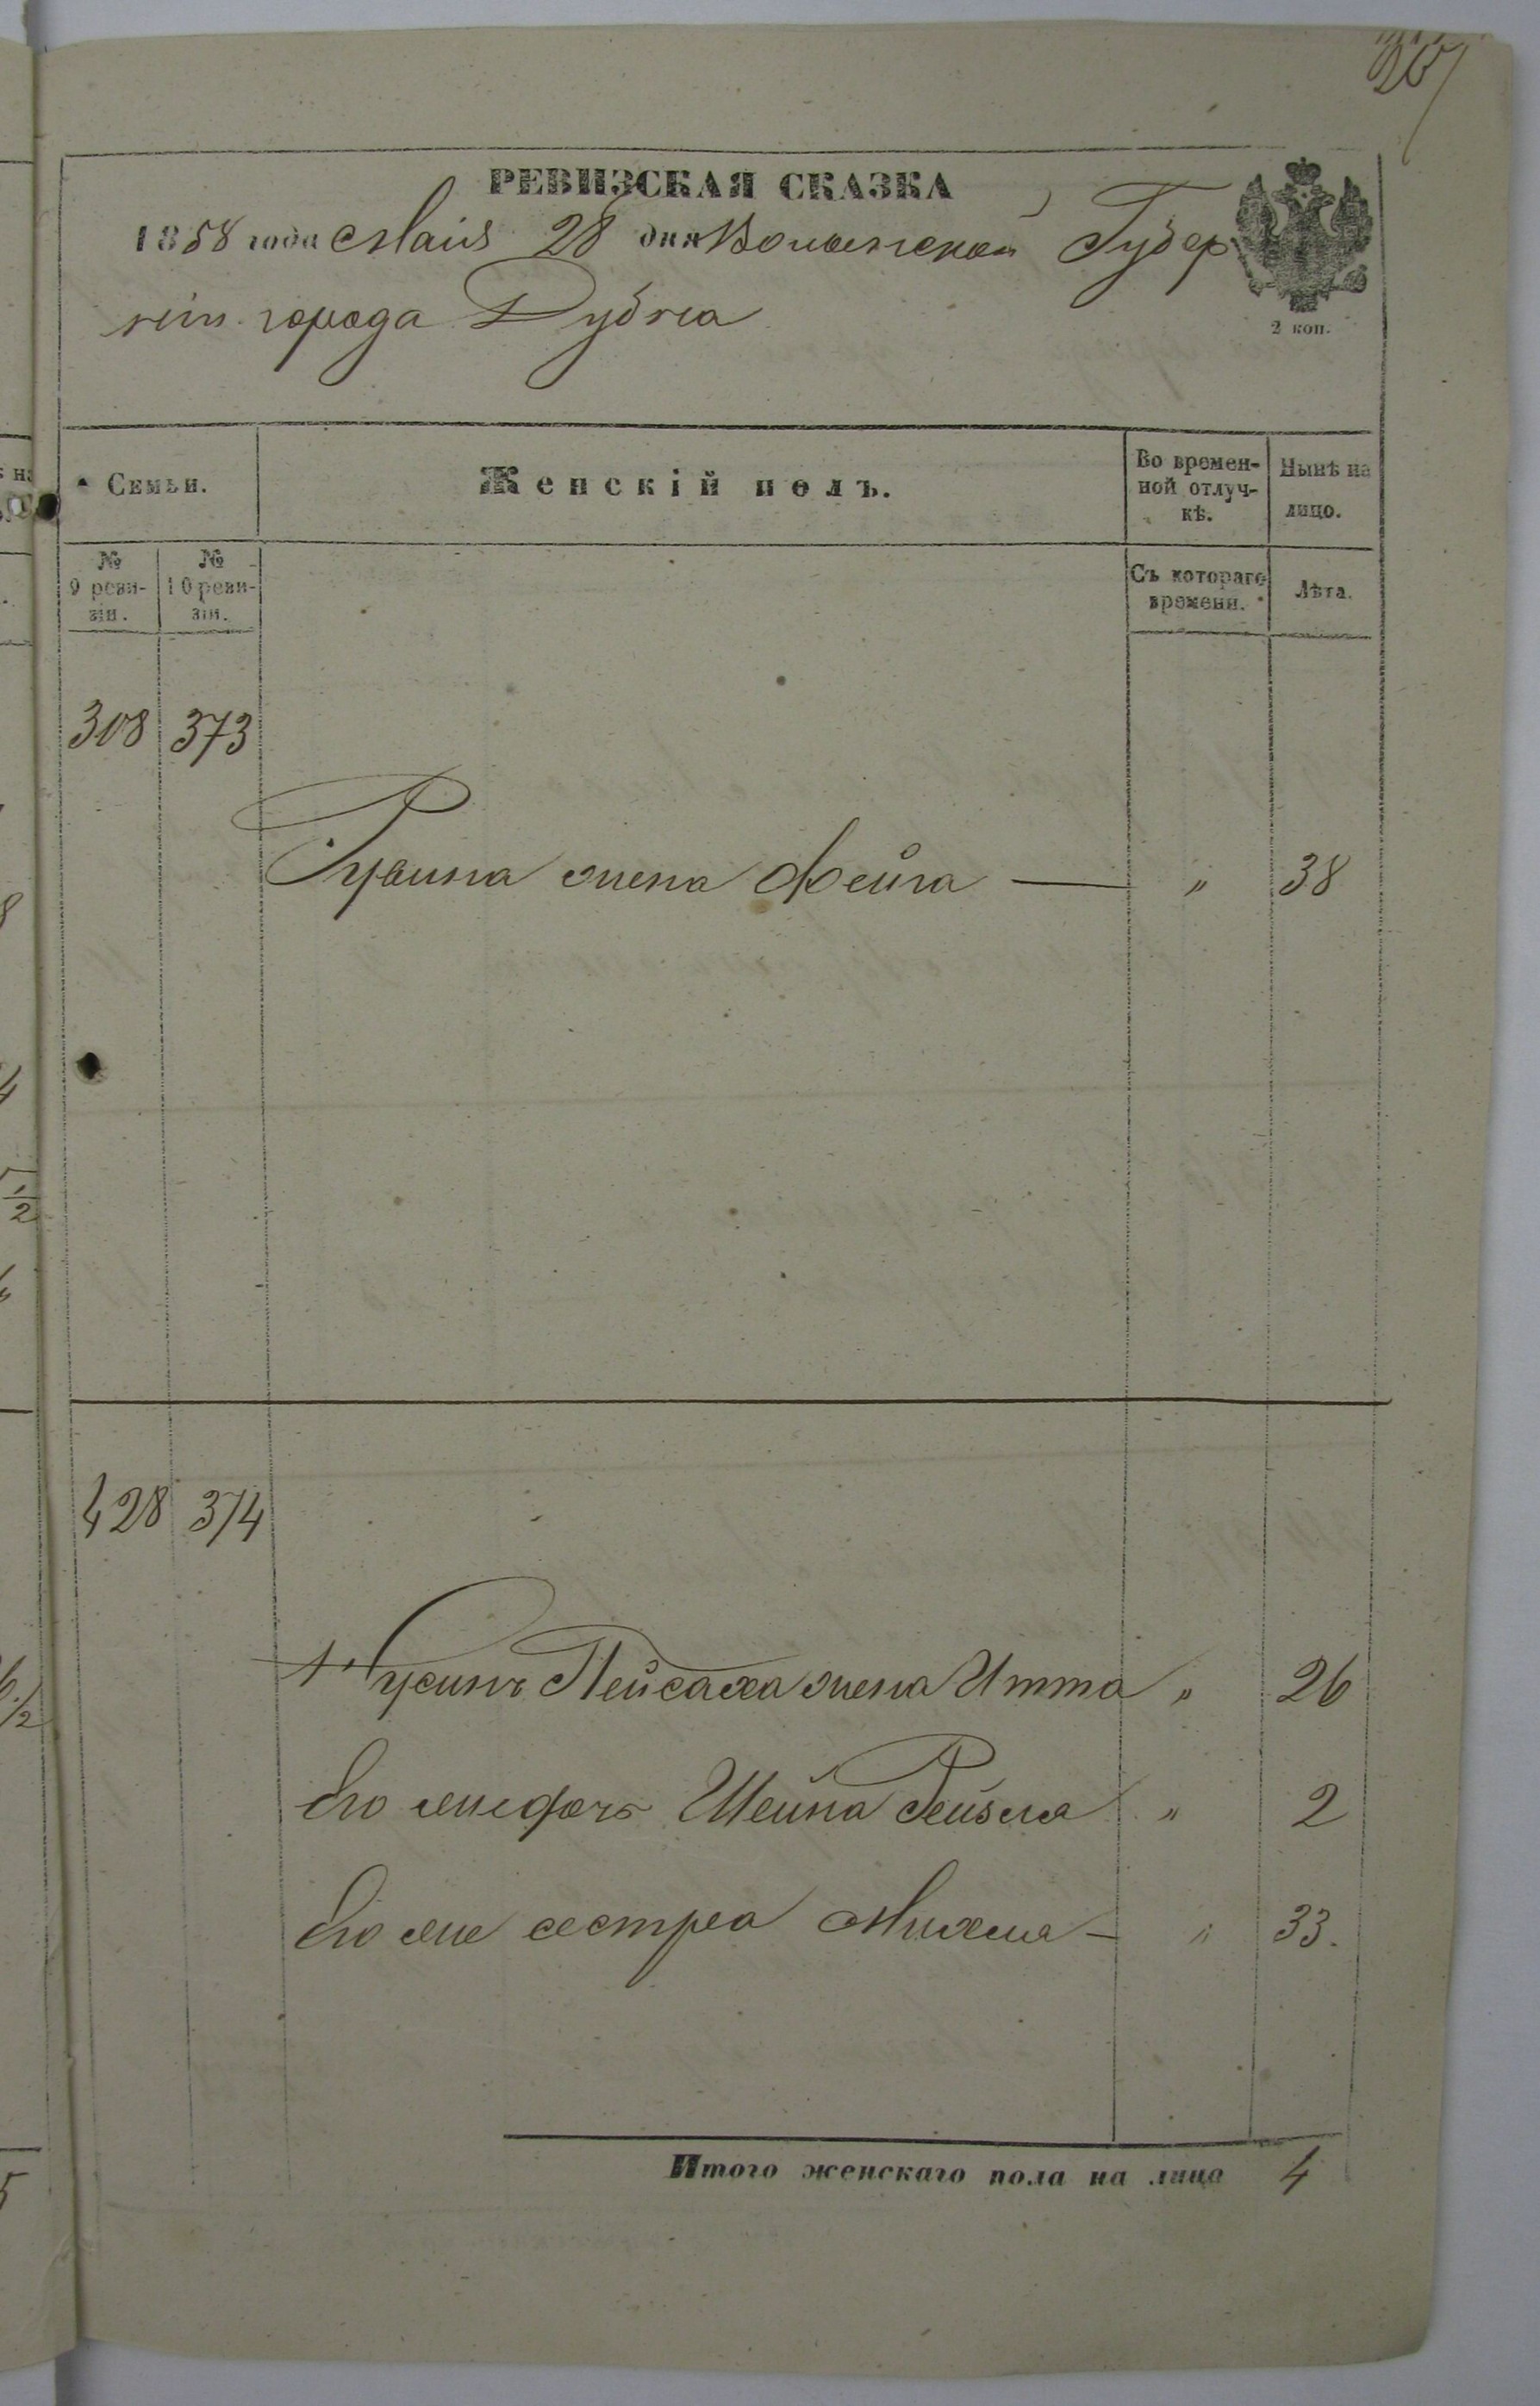 РЕВИЗСКАЯ СКАЗКА
1858 года Маія 28 дня Волынской Губер
ніи города Дубна
2 коп.
Семьи.
Женскій полъ.
Во времен-
ной отлуч-
кѣ.
Нынѣ на
лицо.
№
9 реви-
зіи.
№
10 реви-
зіи.
Съ котораго
времени.
Лѣта.
308 373
жена Фейга — " 38
428 374
Пейсаха жена Итта " 26
Его же дочь Шейна Рейзля " 2
Его же сестра Михля — " 33.
Итого женскаго пола на лицо 4